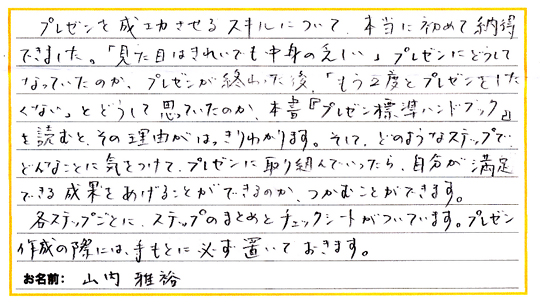 プレゼンを成功させるスキルについて、本当に初めて納得
できました。「見た目はきれいでも中身のない」プレゼンにどうして
なっていたのか、プレゼンが終わった後、「もう2度とプレゼンをした
くない」とどうして思っていたのか、本書『プレゼン標準ハンドブック』
を読むと、その理由がはっきりわかります。そして、どのようなステップで
どんなことに気をつけて、プレゼンに取り組んでいったら、自分が満足
できる成果をあげることができるのか、つかむことができます。
各ステップごとに、ステップのまとめとチェックシートがついています。プレゼン
作成の際には、手もとに必ず置いておきます。
お名前: 山内 雅裕